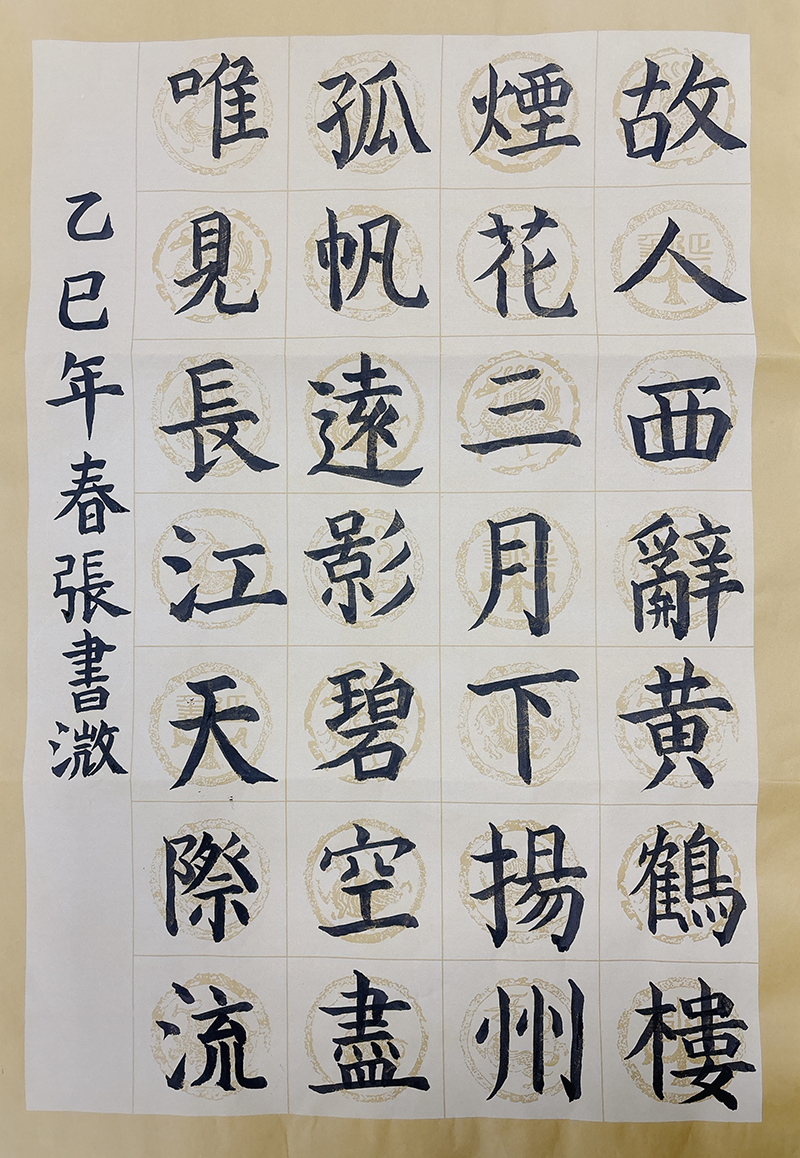 故人西辭黄鶴樓
煙花三月下揚州
孤帆遠影碧空盡
唯見長江天際流
乙巳年春張書溦